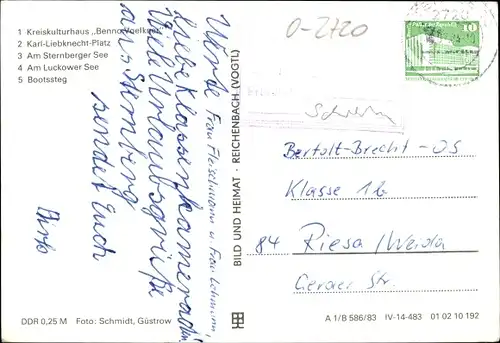 1 Kreiskulturhaus „Benno Voelkner"
2 Karl-Liebknecht-Platz
3 Am Sternberger See
4 Am Luckower See
5 Bootssteg
Werde Frau Fleischmann u. Frau Lehmann,
Liebe Klassenkameraden
Viele Urlaubsgrüße
aus Sternberg
sendet Euch
DDR 0,25 M Foto: Schmidt, Güstrow
BILD UND HEIMAT · REICHENBACH (VOGTL)
0-2720
2720
10
Bertolt-Brecht-OS
Klasse 1b
84 Riesa/Weida
Geraer Str.
A 1/B 586/83 IV-14-483 01 02 10 192